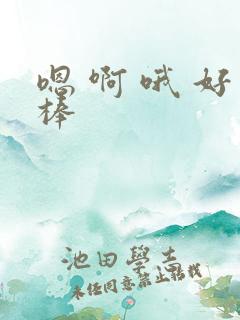 嗯啊哦好
棒
池田學志
未任同意禁止转载